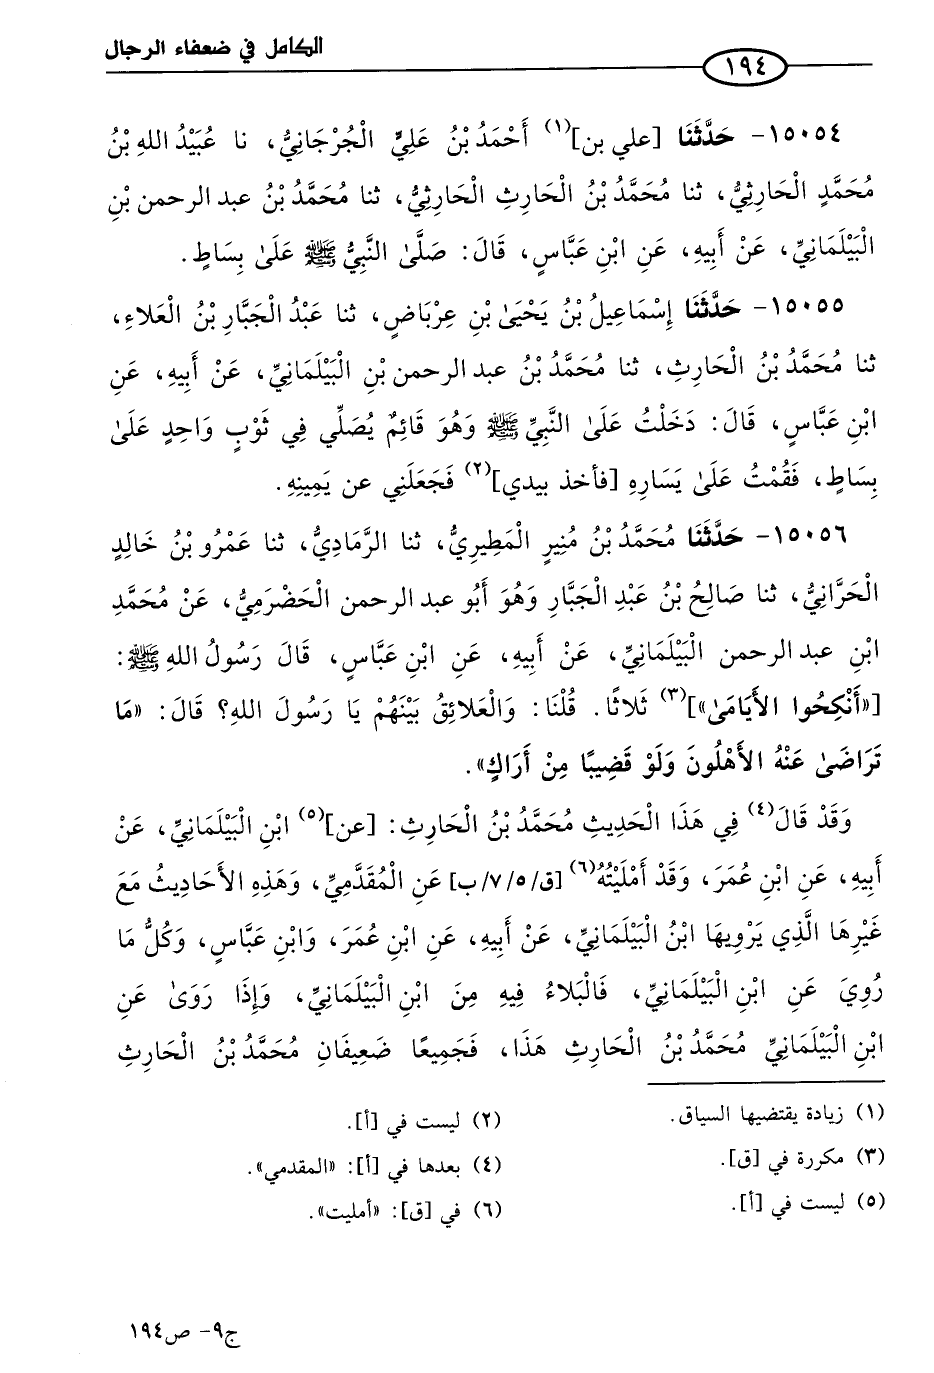 الكامل في ضعفاء الرجال
١٩٤
١٥٠٥٤- حَدَّثَنَا [علي بن](١) أَحْمَدُ بْنُ عَلِيٍّ الْجُرْجَانِيُّ، نا عُبَيْدُ اللهِ بْنُ
مُحَمَّدٍ الْحَارِثِيُّ، ثنا مُحَمَّدُ بْنُ الْحَارِثِ الْحَارِثِيُّ، ثنا مُحَمَّدُ بْنُ عبد الرحمن بْنِ
الْبَيْلَمَانِيِّ، عَنْ أَبِيهِ، عَنِ ابْنِ عَبَّاسٍ، قَالَ: صَلَّىٰ النَّبِيُّ ﷺ عَلَىٰ بِسَاطٍ.
١٥٠٥٥- حَدَّثَنَا إِسْمَاعِيلُ بْنُ يَحْيَىٰ بْنِ عِرْبَاضٍ، ثنا عَبْدُ الْجَبَّارِ بْنُ الْعَلاءِ،
ثنا مُحَمَّدُ بْنُ الْحَارِثِ، ثنا مُحَمَّدُ بْنُ عبد الرحمن بْنِ الْبَيْلَمَانِيِّ، عَنْ أَبِيهِ، عَنِ
ابْنِ عَبَّاسٍ، قَالَ: دَخَلْتُ عَلَىٰ النَّبِيِّ ﷺ وَهُوَ قَائِمٌ يُصَلِّي فِي ثَوْبٍ وَاحِدٍ عَلَىٰ
بِسَاطٍ، فَقُمْتُ عَلَىٰ يَسَارِهِ [فأخذ بيدي](٢) فَجَعَلَنِي عن يَمِينِهِ.
١٥٠٥٦- حَدَّثَنَا مُحَمَّدُ بْنُ مُنِيرٍ الْمَطِيرِيُّ، ثنا الرَّمَادِيُّ، ثنا عَمْرُو بْنُ خَالِدٍ
الْحَرَّانِيُّ، ثنا صَالِحُ بْنُ عَبْدِ الْجَبَّارِ وَهُوَ أَبُو عبد الرحمن الْحَضْرَمِيُّ، عَنْ مُحَمَّدِ
ابْنِ عبد الرحمن الْبَيْلَمَانِيِّ، عَنْ أَبِيهِ، عَنِ ابْنِ عَبَّاسٍ، قَالَ رَسُولُ اللهِ ﷺ:
[«أَنْكِحُوا الأَيَامَىٰ»](٣) ثَلاثًا. قُلْنَا: وَالْعَلائِقُ بَيْنَهُمْ يَا رَسُولَ اللهِ؟ قَالَ: «مَا
تَرَاضَىٰ عَنْهُ الأَهْلُونَ وَلَوْ قَضِيبًا مِنْ أَرَاكٍ».
وَقَدْ قَالَ(٤) فِي هَذَا الْحَدِيثِ مُحَمَّدُ بْنُ الْحَارِثِ: [عن](٥) ابْنِ الْبَيْلَمَانِيِّ، عَنْ
أَبِيهِ، عَنِ ابْنِ عُمَرَ، وَقَدْ أَمْلَيْتُهُ(٦) [ق/٧/٥/ب] عَنِ الْمُقَدَّمِيِّ، وَهَذِهِ الأَحَادِيثُ مَعَ
غَيْرِهَا الَّذِي يَرْوِيهَا ابْنُ الْبَيْلَمَانِيِّ، عَنْ أَبِيهِ، عَنِ ابْنِ عُمَرَ، وَابْنِ عَبَّاسٍ، وَكُلُّ مَا
رُوِيَ عَنِ ابْنِ الْبَيْلَمَانِيِّ، فَالْبَلاءُ فِيهِ مِنَ ابْنِ الْبَيْلَمَانِيِّ، وَإِذَا رَوَىٰ عَنِ
ابْنِ الْبَيْلَمَانِيِّ مُحَمَّدُ بْنُ الْحَارِثِ هَذَا، فَجَمِيعًا ضَعِيفَانِ مُحَمَّدُ بْنُ الْحَارِثِ
(١) زيادة يقتضيها السياق.
(٢) ليست في [أ].
(٣) مكررة في [ق].
(٤) بعدها في [أ]: «المقدمي».
(٥) ليست في [أ].
(٦) في [ق]: «أمليت».
ج٩- ص١٩٤